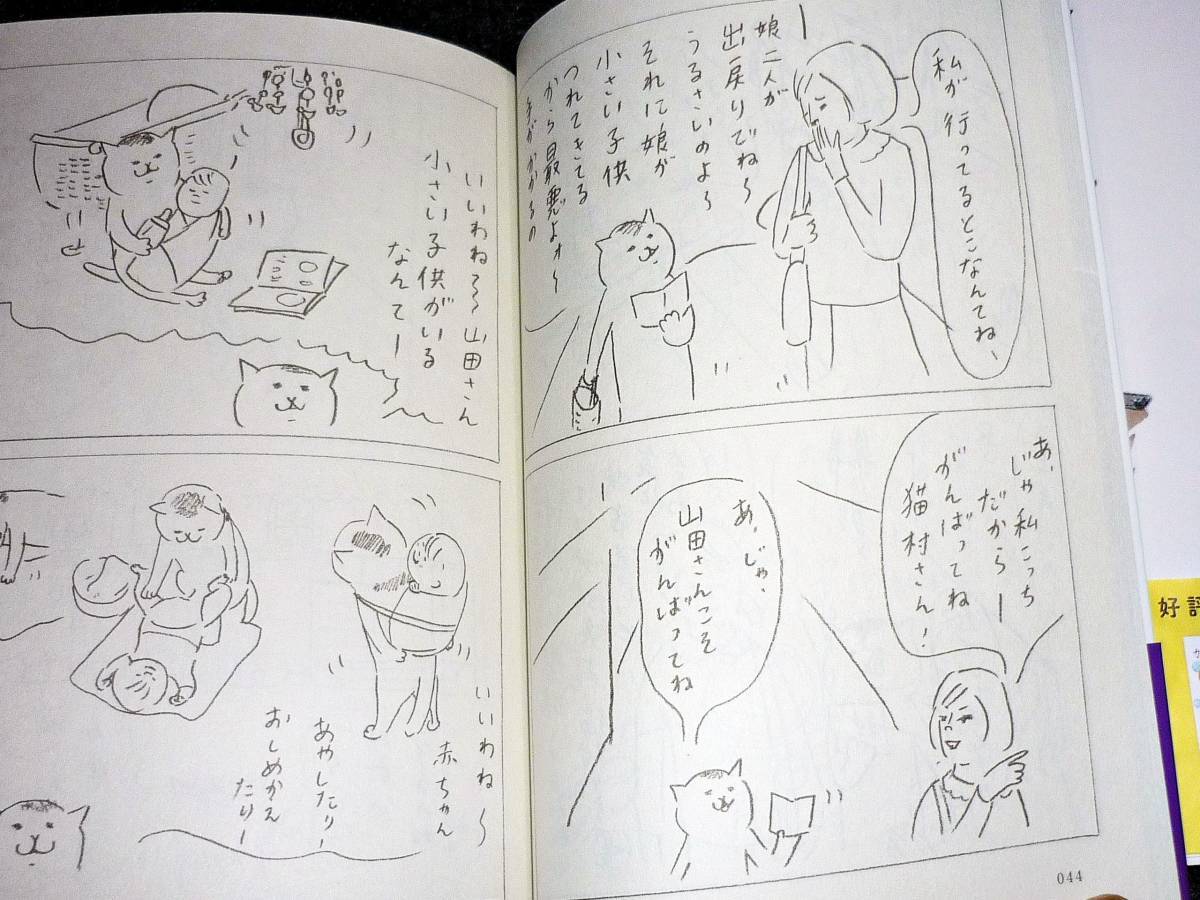 私が行ってるとこなんてね〜
娘二人が
出戻りでね〜
うるさいのよ〜
それに娘が
小さい子供
つれてきてる
から最悪よォ〜
手がかかるの
あ、
じゃ私こっち
だからー
がんばってね
猫村さん!
あ、じゃ、
山田さんこそ
がんばってね
044
いいわね〜〜山田さん
小さい子供がいる
なんてー
いいわね〜
赤ちゃん
あやしたりー
おしめかえ
たりー
好評